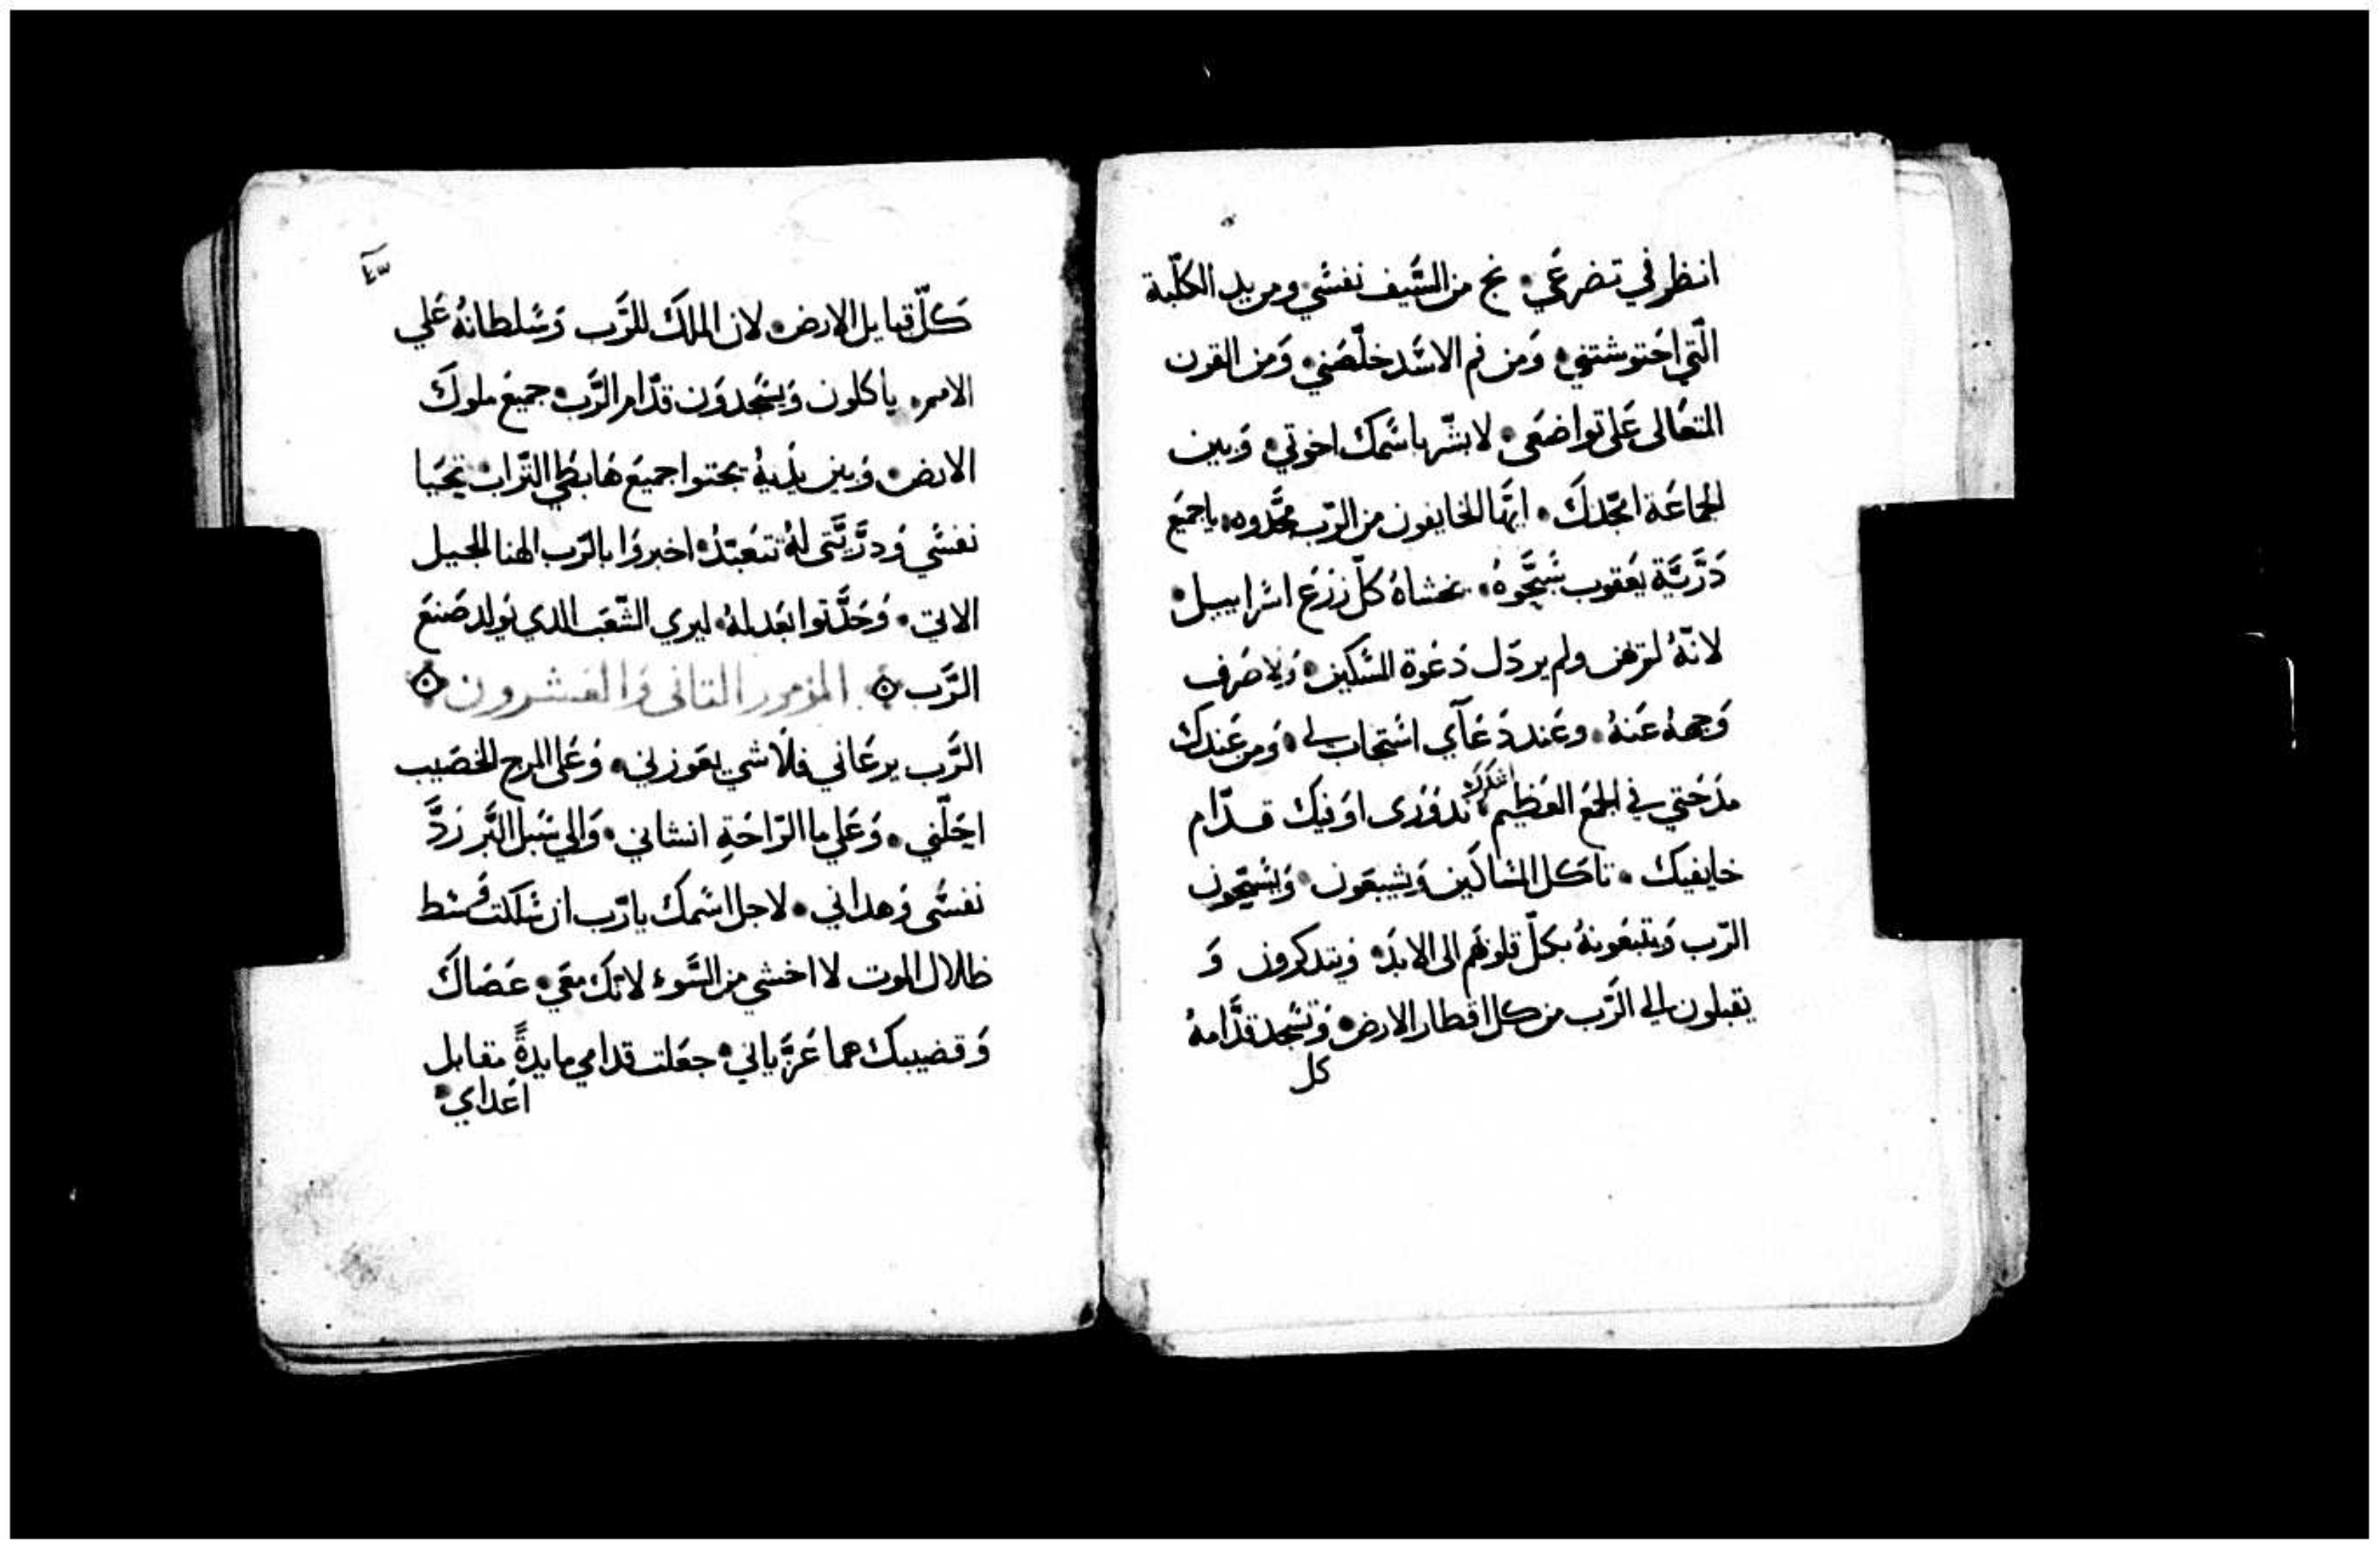 انظر في تضرعَي • نج من السَّيف نفسَي • ومن يد الكلّبة
الّتي احَتوشتني • وَمن فم الاسَد خلّصَني • وَمن القرن
المتعَالى عَلى تواضعَي • لابشّر باسَمك اخوتي • وَبين
الجماعَة امجّدكَ • ايّها الخايفون من الرّب مجَّدوه • ياجميَع
دَرَّيَّة يعَقوب سَبَّحَوهُ • يخشاهُ كلّ زرَع اسَراييل •
لانّهُ لم يرفض ولم يردَل دَعَوة المسَكين • وَلا صَرف
وَجههُ عَنهُ • وعَند دَعَآي اسَتجاب لي • وَمن عَندك
مدَحَتي في الجمَع العَظيم • اشكرك ندوَرى اوَفيك قدّام
خايفيك • تاكل المسَاكَين وَيشبعَون • وَيسَبّحَون
الرّب وَيتبعَونهُ بكلّ قلوبَهم الى الابدَ • وَيتدكرون وَ
يقبلون الي الرَّب من كل اقطار الارض • وَتسَجد قدَّامهُ
كل
٤٣
كَلّ قبايل الارض • لان الملكَ للرَّب وَسَلطانهُ عَلي
الامم • ياكلون وَيسَجدوَن قدّام الرَّب • جميَع ملوكَ
الارض • وَبين يدَيهُ يجتوا جميَع هَابطَي التّراب • تحيَا
نفسَي وَدرَّيَّتى لهُ تتعَبّد • اخبروَا بالرّب الهنا الجيل
الاتي • وَحَدَّتوا بعَدلهُ • ليري الشّعَب الدي يوَلد صَنعَ
الرَّب ۞ المزمور التانى وَالعَشرون ۞
الرَّب يرعَاني فلَا شي يعَوزني • وَعَلى المرج الخصَيب
احَلّني • وَعَلي ما الرّاحَةِ انشاني • وَالي سَبل البَّر رَدَّ
نفسَى وَهداني • لاجل اسَمك يارَّب ان سَلكت وَسَط
ظلال الموت لا اخشي من السَّوء لانّك معَي • عَصَاكَ
وَقضيبك هما عَزَّياني • جعَلت قدامي مايدةً مقابل
اعَداي •